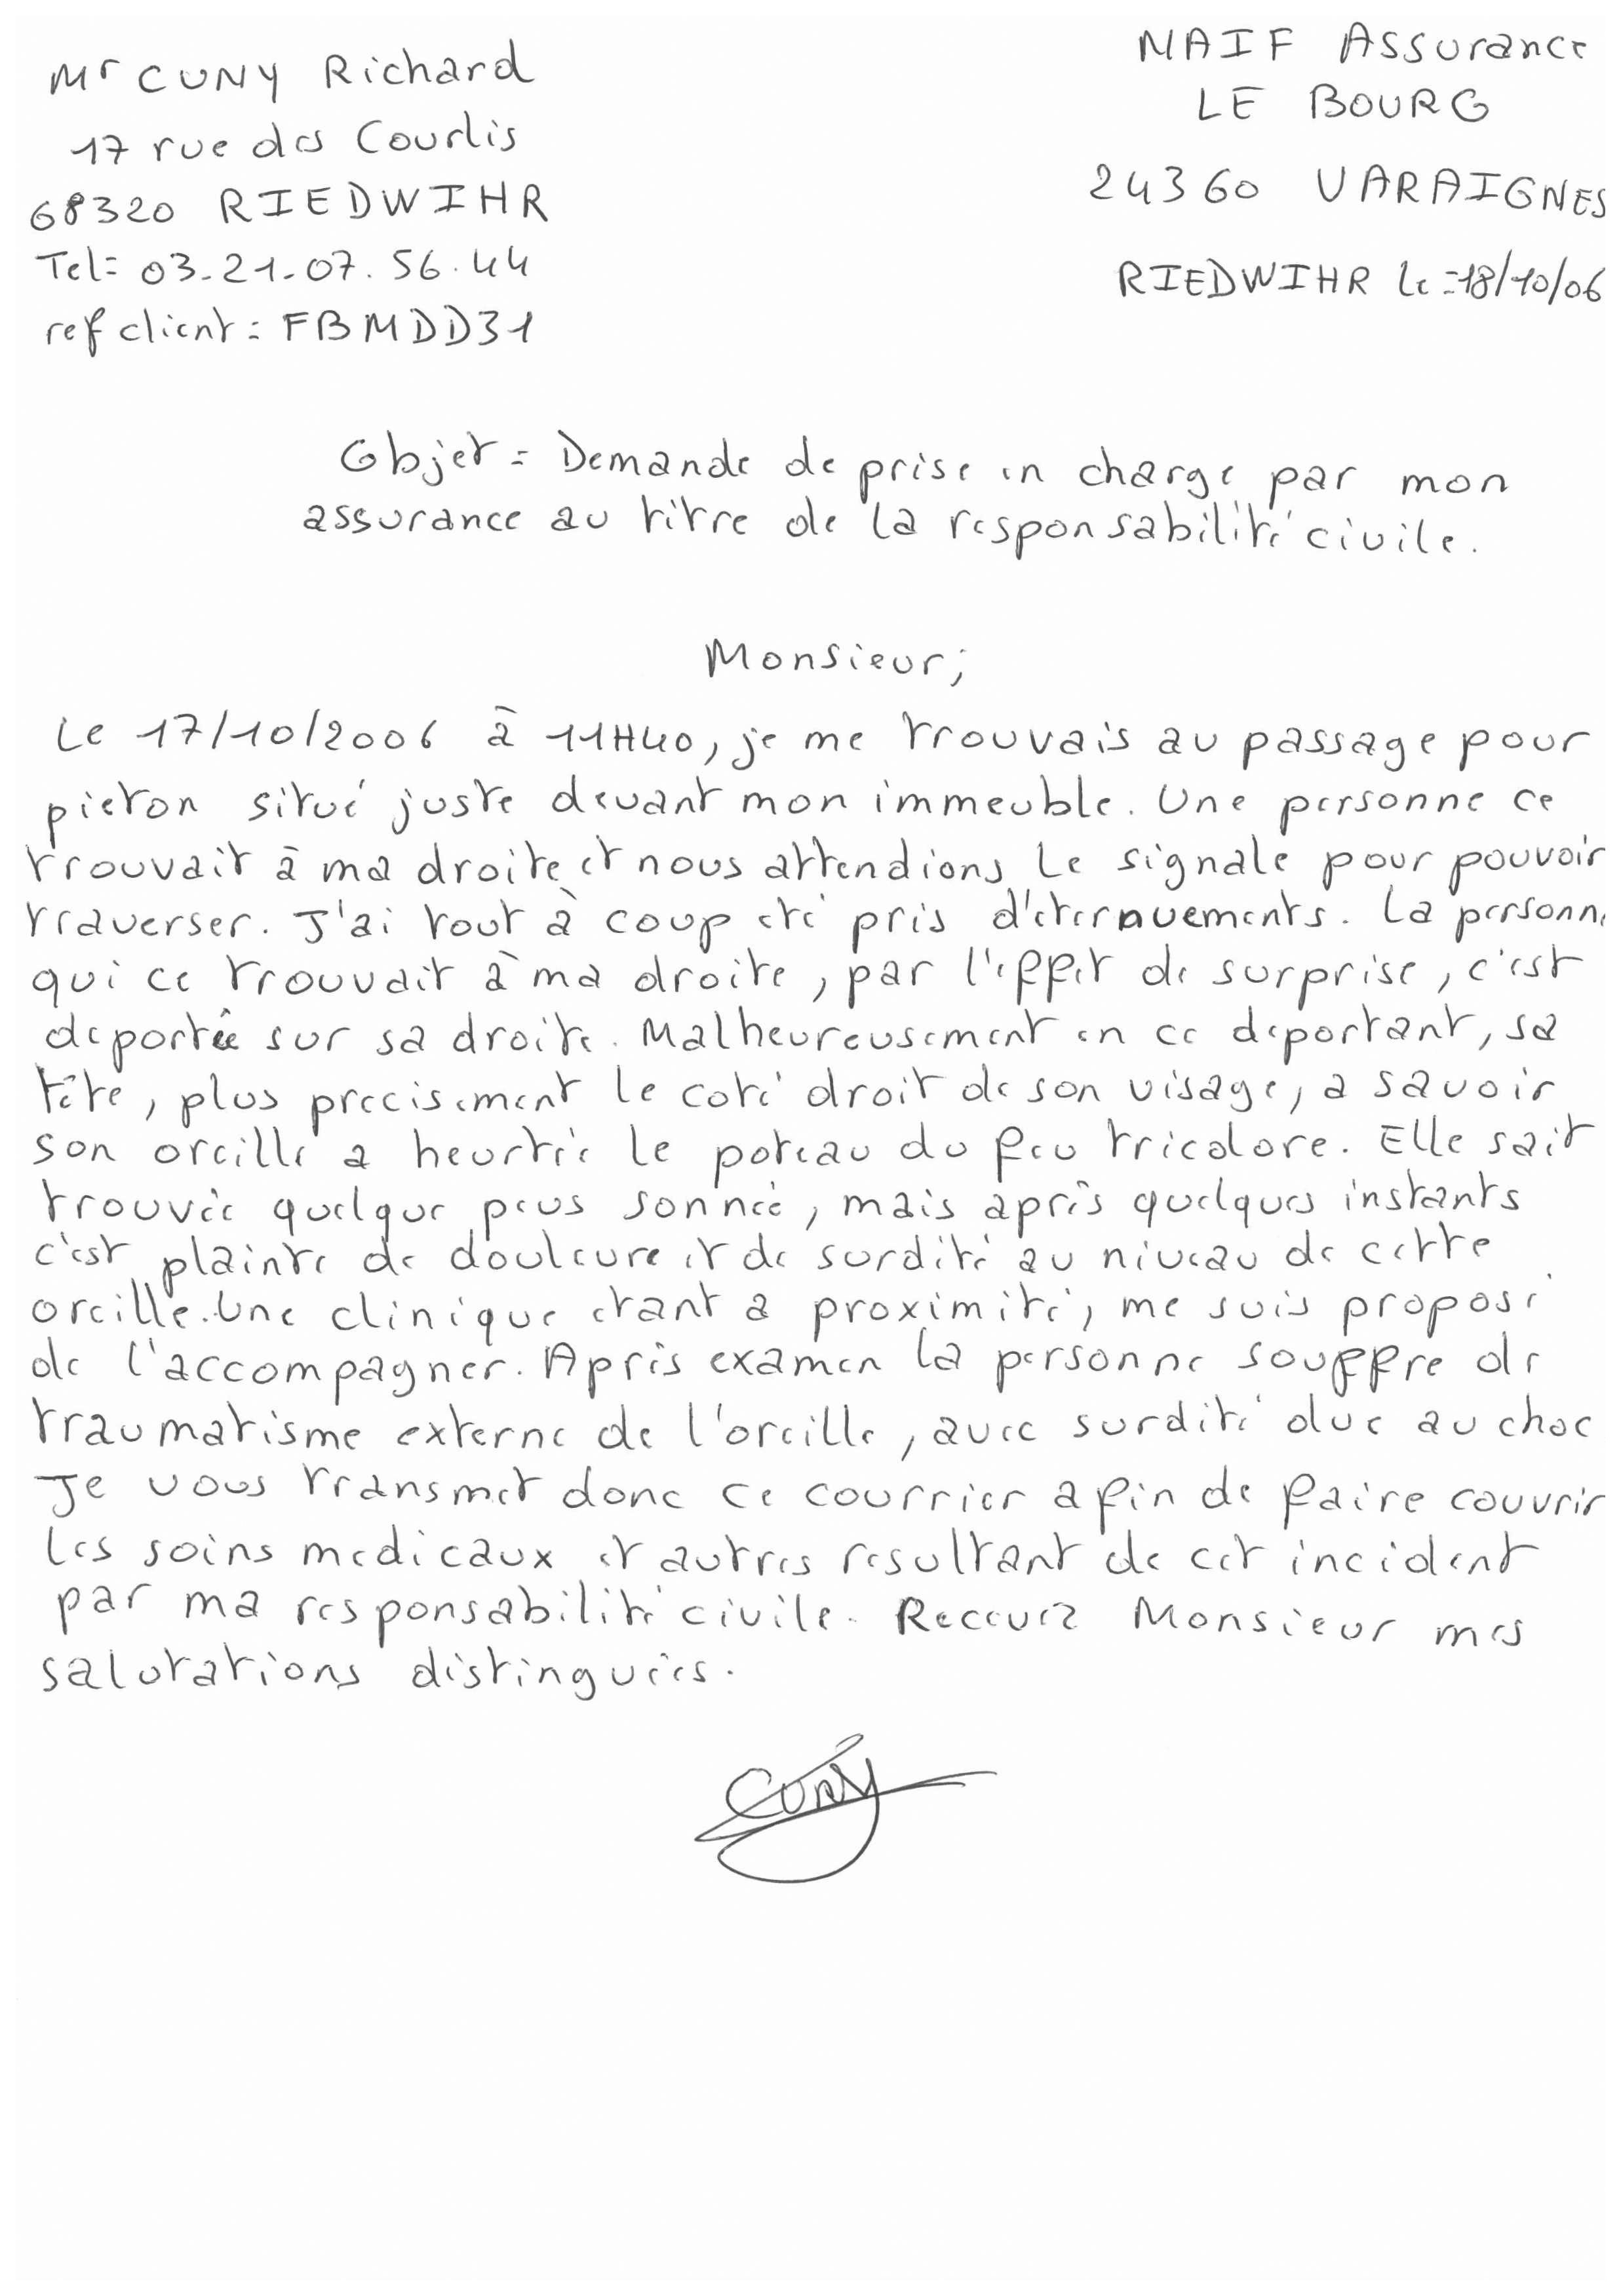 Mr CUNY Richard
17 rue des Courlis
68320 RIEDWIHR
Tel= 03-21-07.56.44
ref client = FBMDD31
MAIF Assurance
LE BOURG
24360 VARAIGNES
RIEDWIHR le = 18/10/06
Objet = Demande de prise en charge par mon
assurance au titre de la responsabilité civile.
Monsieur;
Le 17/10/2006 à 11H40, je me trouvais au passage pour
pieton situé juste devant mon immeuble. Une personne ce
trouvait à ma droite et nous attendions le signale pour pouvoir
traverser. J'ai tout à coup eté pris d'eternuements. La personne
qui ce trouvait à ma droite, par l'effet de surprise, c'est
deportée sur sa droite. Malheureusement en ce deportant, sa
tête, plus precisement le coté droit de son visage, a savoir
son oreille a heurtée le poteau du feu tricolore. Elle sait
trouvée quelque peus sonnée, mais après quelques instants
c'est plainte de douleure et de surdité au niveau de cette
oreille. Une clinique etant a proximité, me suis proposé
de l'accompagner. Après examen la personne souffre de
traumatisme externe de l'oreille, avec surdité due au choc
Je vous transmet donc ce courrier afin de faire couvrir
les soins medicaux et autres resultant de cet incident
par ma responsabilité civile. Recevez Monsieur mes
salutations distinguées.
CUNY